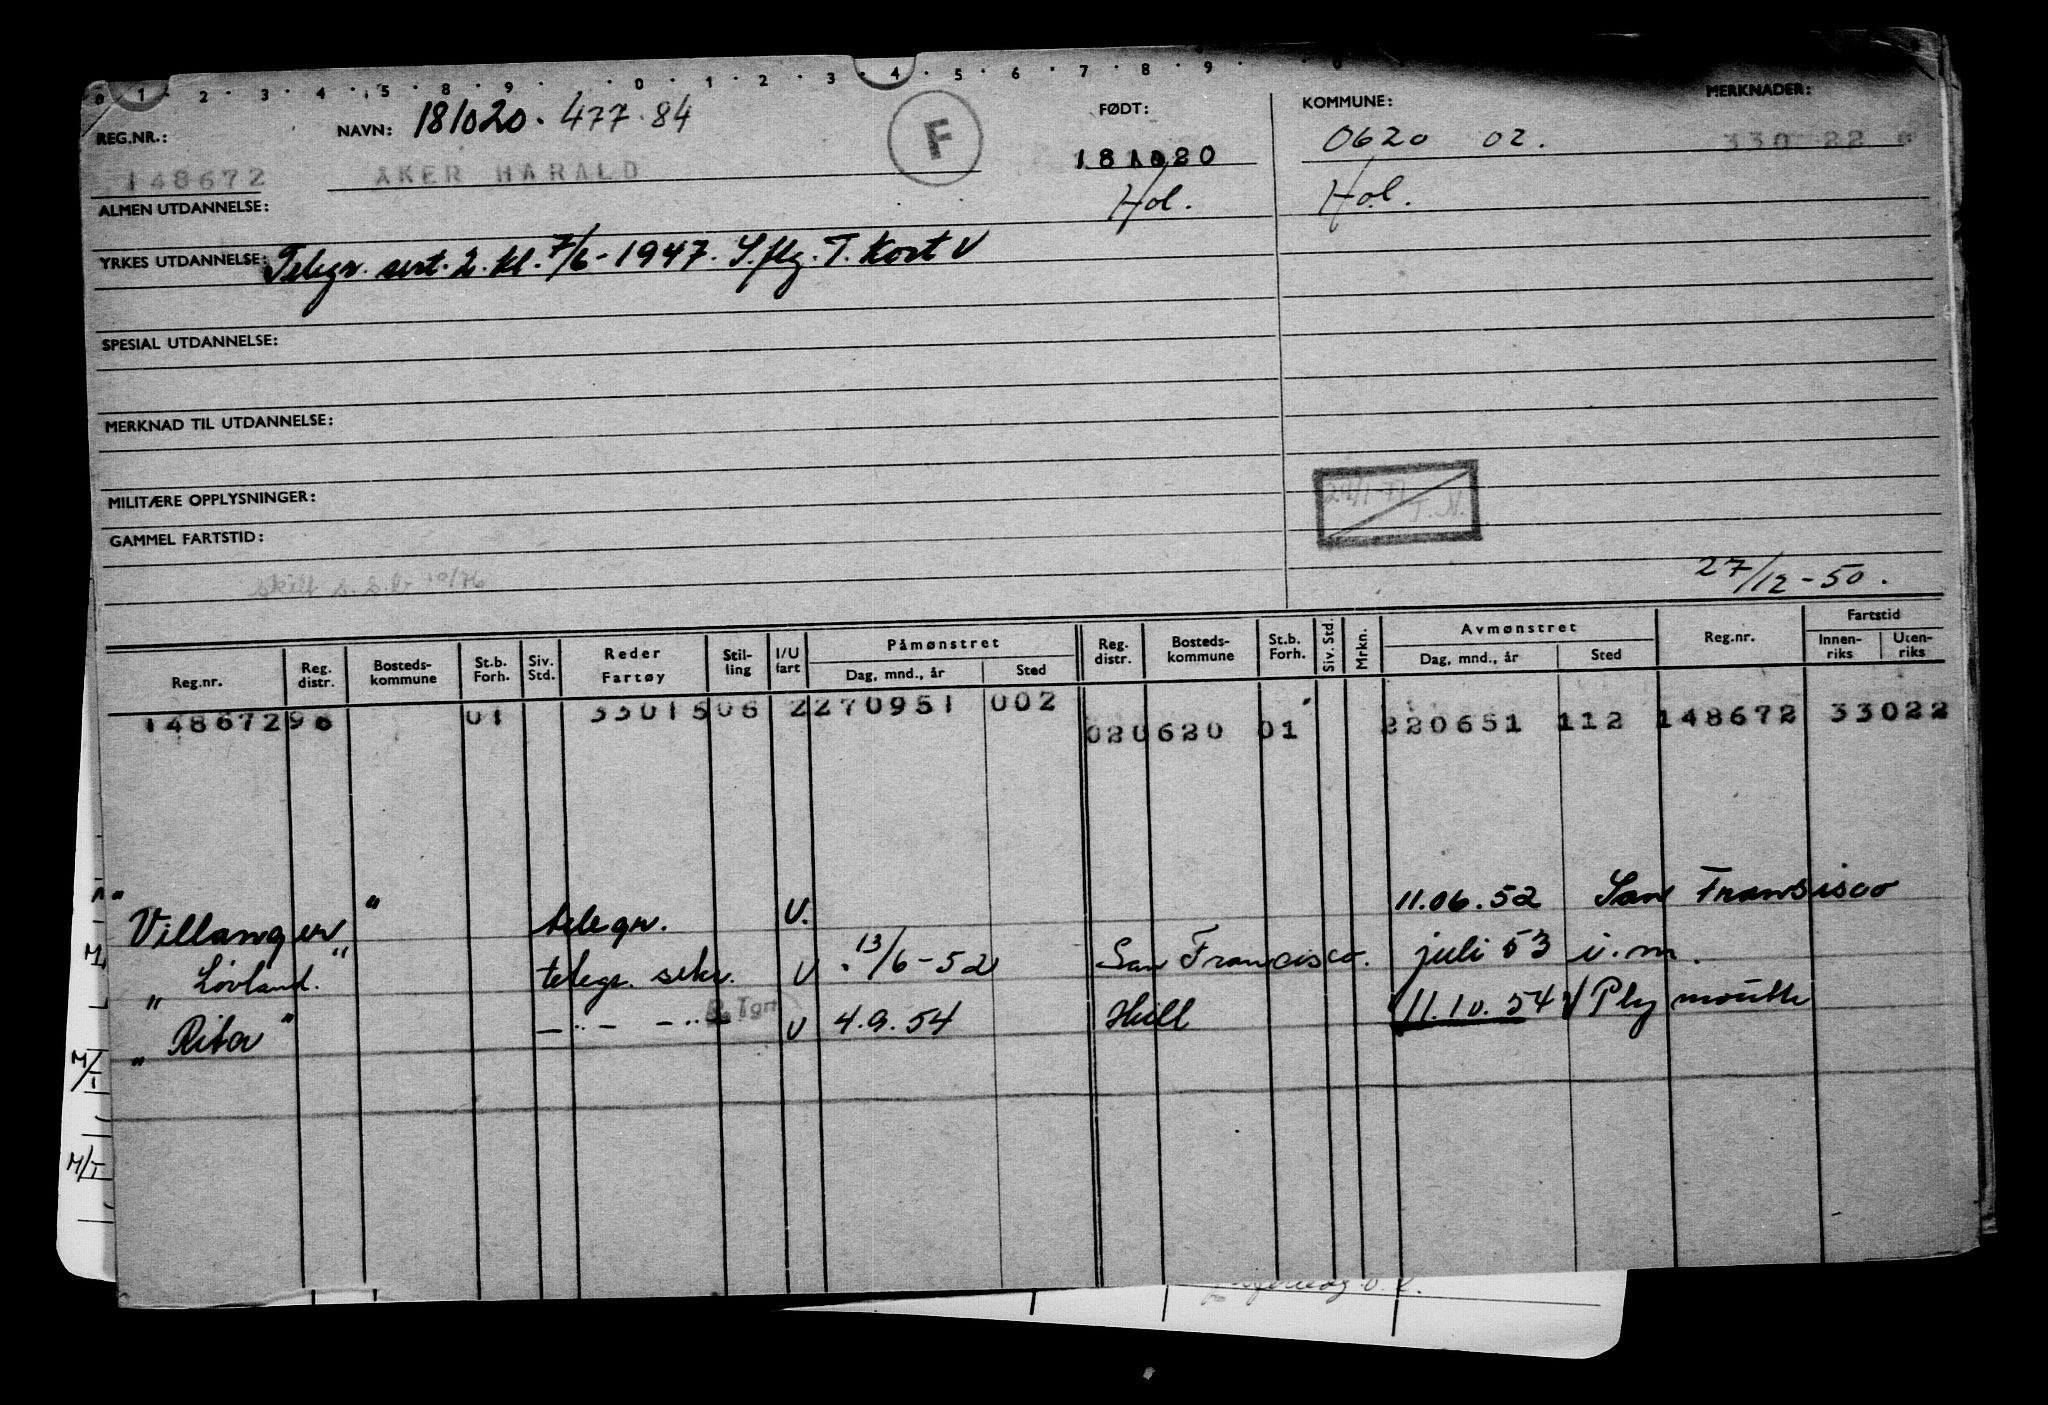 0 1 · 2 · 3 · 4 · 5 · 8 · 9 · · 0 · 1 · 2 · 3 · 4 · 5 · 6 · 7 · 8 · 9 · · 0
REG.NR.: NAVN: 181020. 477.84 F FØDT: KOMMUNE: MERKNADER:
148672 AKER HARALD 181020 0620 02. 330 22
ALMEN UTDANNELSE: Hol. Hol.
YRKES UTDANNELSE: Telegr. sert. 2. kl. 7/6-1947. S.flg. T. Kort V
SPESIAL UTDANNELSE:
MERKNAD TIL UTDANNELSE:
MILITÆRE OPPLYSNINGER: 24/1-77 T.N.
GAMMEL FARTSTID:
27/12-50.
Reg.nr. Reg. distr. Bosteds-kommune St.b. Forh. Siv. Std. Reder Fartøy Stil-ling I/U fart Påmønstret Dag, mnd., år Sted Reg. distr. Bosteds-kommune St.b. Forh. Siv. Std. Mrkn. Avmønstret Dag, mnd., år Sted Reg.nr. Fartstid Innen-riks Uten-riks
148672 96 01 33015 06 2 270951 002 02 0620 01 220651 112 148672 33022
"Villanger" telegr. U. 11.06.52 San Fransisco
" Lovland." telegr. sekr. U 13/6-52 San Francisco. juli 53 i.m.
" Rita" — " — — " — U 4.9.54 Hull 11.10.54 Plymouth
M/T
M/T